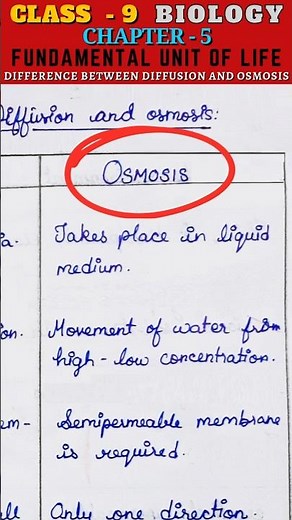 CLASS - 9 BIOLOGY
CHAPTER - 5
FUNDAMENTAL UNIT OF LIFE
DIFFERENCE BETWEEN DIFFUSION AND OSMOSIS
Diffusion and osmosis:
OSMOSIS
Takes place in liquid
medium.
Movement of water from
high - low concentration.
Semipermeable membrane
is required.
Only one direction.